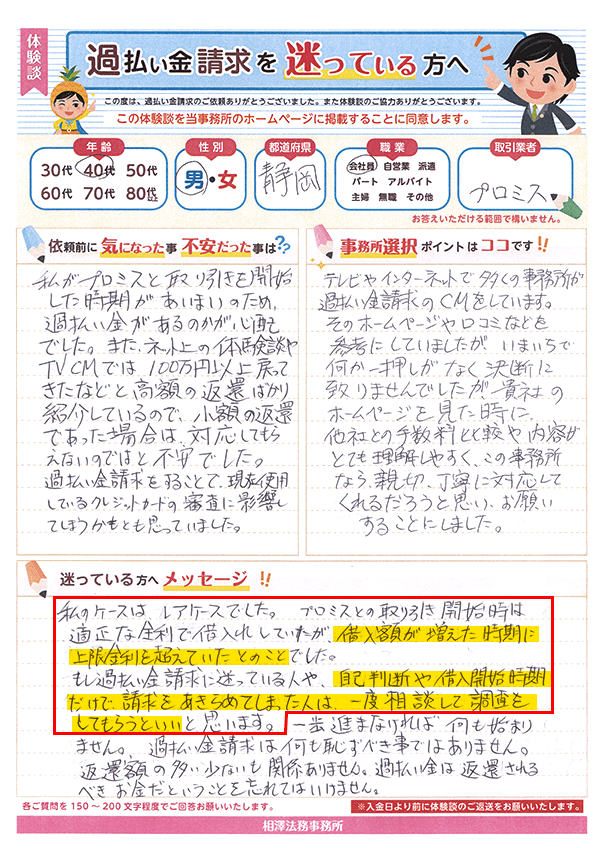 体験談
過払い金請求を迷っている方へ
この度は、過払い金請求のご依頼ありがとうございました。また体験談のご協力ありがとうございます。
この体験談を当事務所のホームページに掲載することに同意します。
年齢
30代 40代 50代
60代 70代 80代以上
性別
男・女
都道府県
静岡
職業
会社員 自営業 派遣
パート アルバイト
主婦 無職 その他
取引業者
プロミス
お答えいただける範囲で構いません。
依頼前に気になった事 不安だった事は??
私がプロミスと取り引きを開始
した時期があいまいのため、
過払い金があるのかが心配
でした。また、ネット上の体験談や
TVCMでは100万円以上戻って
きたなどと高額の返還ばかり
紹介しているので、小額の返還
であった場合は、対応してもら
えないのではと不安でした。
過払い金請求をすることで、現在使用
しているクレジットカードの審査に影響
してしまうかもとも思っていました。
事務所選択ポイントはココです!!
テレビやインターネットで多くの事務所が
過払い金請求のCMをしています。
そのホームページや口コミなどを
参考にしていましたが、いまいちで
何か一押しがなく決断に
致りませんでしたが、貴社の
ホームページを見た時に、
他社との手数料比較や内容が
とても理解しやすく、この事務所
なら、親切、丁寧に対応して
くれるだろうと思い、お願い
することにしました。
迷っている方へメッセージ!!
私のケースは レアケースでした。 プロミスとの取り引き開始時は
適正な金利で借入れしていたが、借入額が増えた時期に
上限金利を超えていたとのことでした。
もし過払い金請求に迷っている人や、自己判断や借入開始時期
だけで、請求をあきらめてしまった人は、一度相談して調査を
してもらうといいと思います。 一歩進まなければ何も始まり
ません。過払い金請求は何も恥ずべき事ではありません。
返還額の多い少ないも関係ありません。過払い金は返還される
べきお金だということを忘れてはいけません。
各ご質問を150～200文字程度でご回答お願いいたします。
※入金日より前に体験談のご返送をお願いいたします。
相澤法務事務所